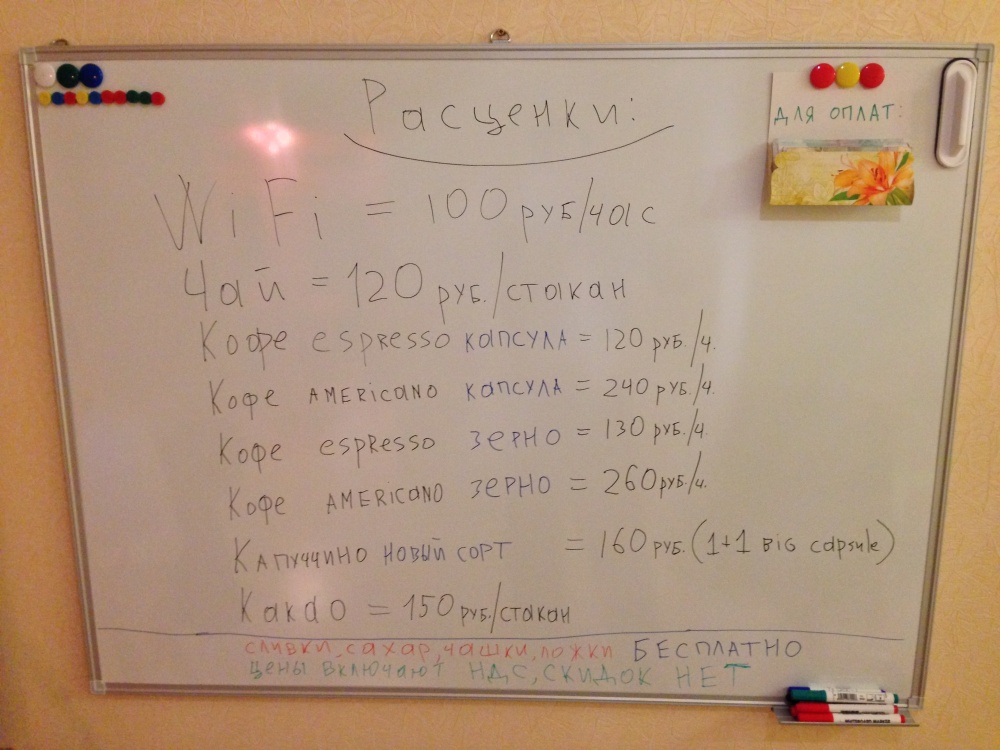 Расценки:
ДЛЯ ОПЛАТ:
WiFi = 100 руб/час
Чай = 120 руб./стакан
Кофе espresso капсула = 120 руб./ч.
Кофе AMERICANO капсула = 240 руб./ч.
Кофе espresso зерно = 130 руб./ч.
Кофе AMERICANO зерно = 260 руб/ч.
Капуччино новый сорт = 160 руб. (1+1 BIG capsule)
Какао = 150 руб/стакан
сливки, сахар, чашки, ложки БЕСПЛАТНО
цены включают НДС, СКИДОК НЕТ